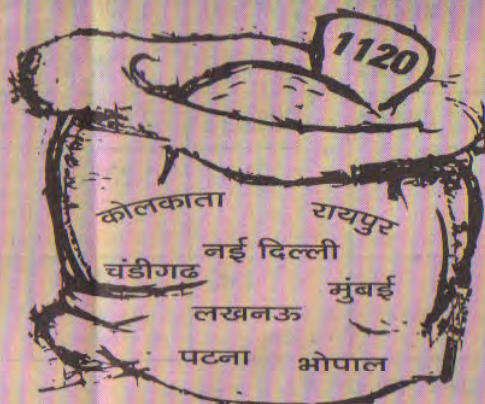 1120
कोलकाता
रायपुर
नई दिल्ली
चंडीगढ
मुंबई
लखनऊ
पटना
भोपाल